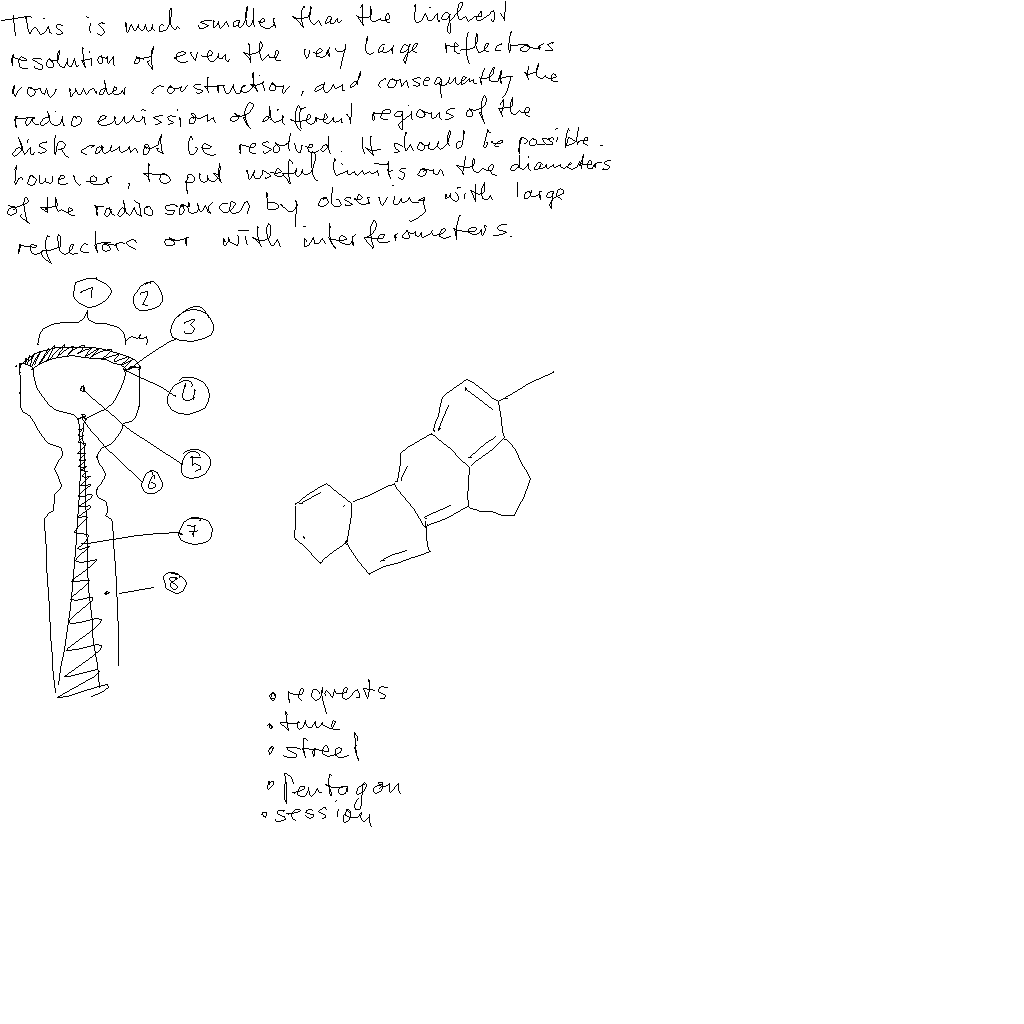 This is much smaller than the highest
resolution of even the very large reflectors
now under construction, and consequently the
radio emission of different regions of the
disk cannot be resolved. It should be possible.
however, to put useful limits on the diameters
of the radio sources by observing with large
reflectors or with interferometers.
1
2
3
4
5
6
7
8
• requests
• tune
• street
• Pentagon
• session